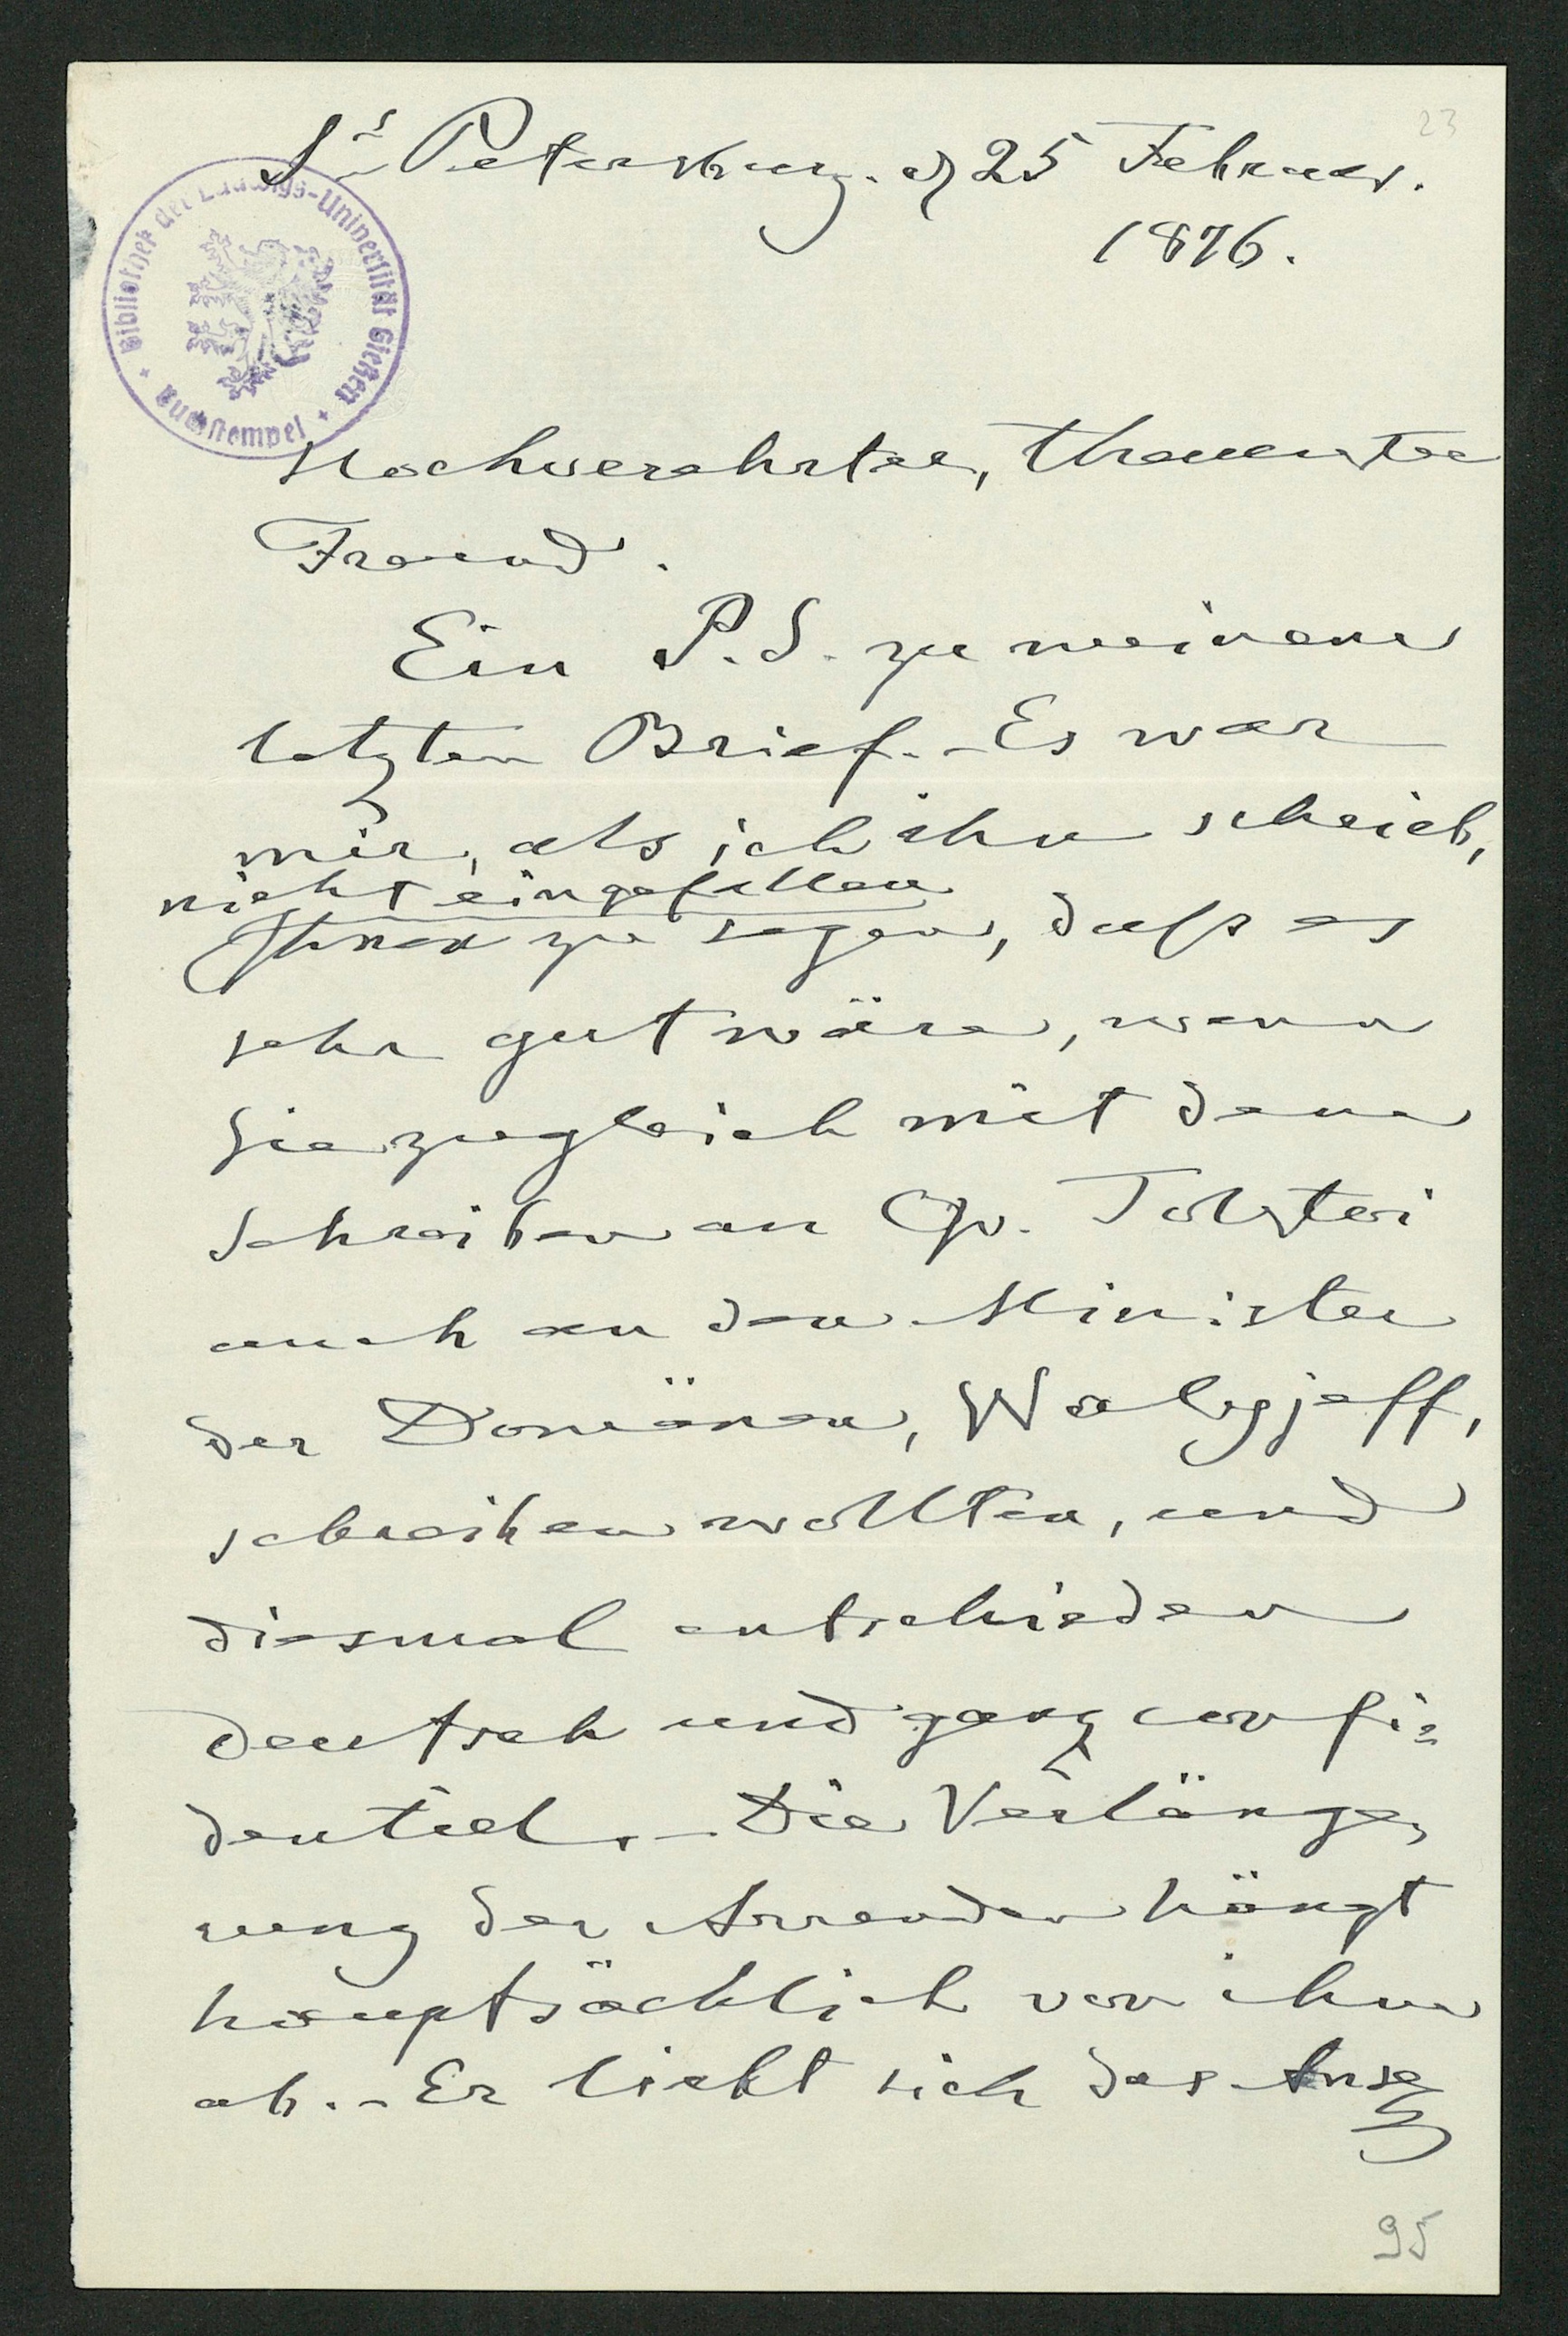 23
St Petersburg. d 25 Februar.
1876.
Bibliothek der Ludwigs-Universität Gießen
Buchstempel
Hochverehrter, theuerster
Freund.
Ein P.S. zu meinem
letzten Brief. – Es war
mir, als ich ihn schrieb,
nicht eingefallen
Ihnen zu sagen, daſs es
sehr gut wäre, wenn
Sie zugleich mit dem
Schreiben an Gr. Tolstoi
auch an den Minister
der Domänen, Walujeff,
schreiben wollten, und
diesmal entschieden
deutsch und ganz confi=
dentiel. – Die Verlänge,
rung der Arrenden hängt
hauptsächlich von ihm
ab. – Er liebt sich das
95